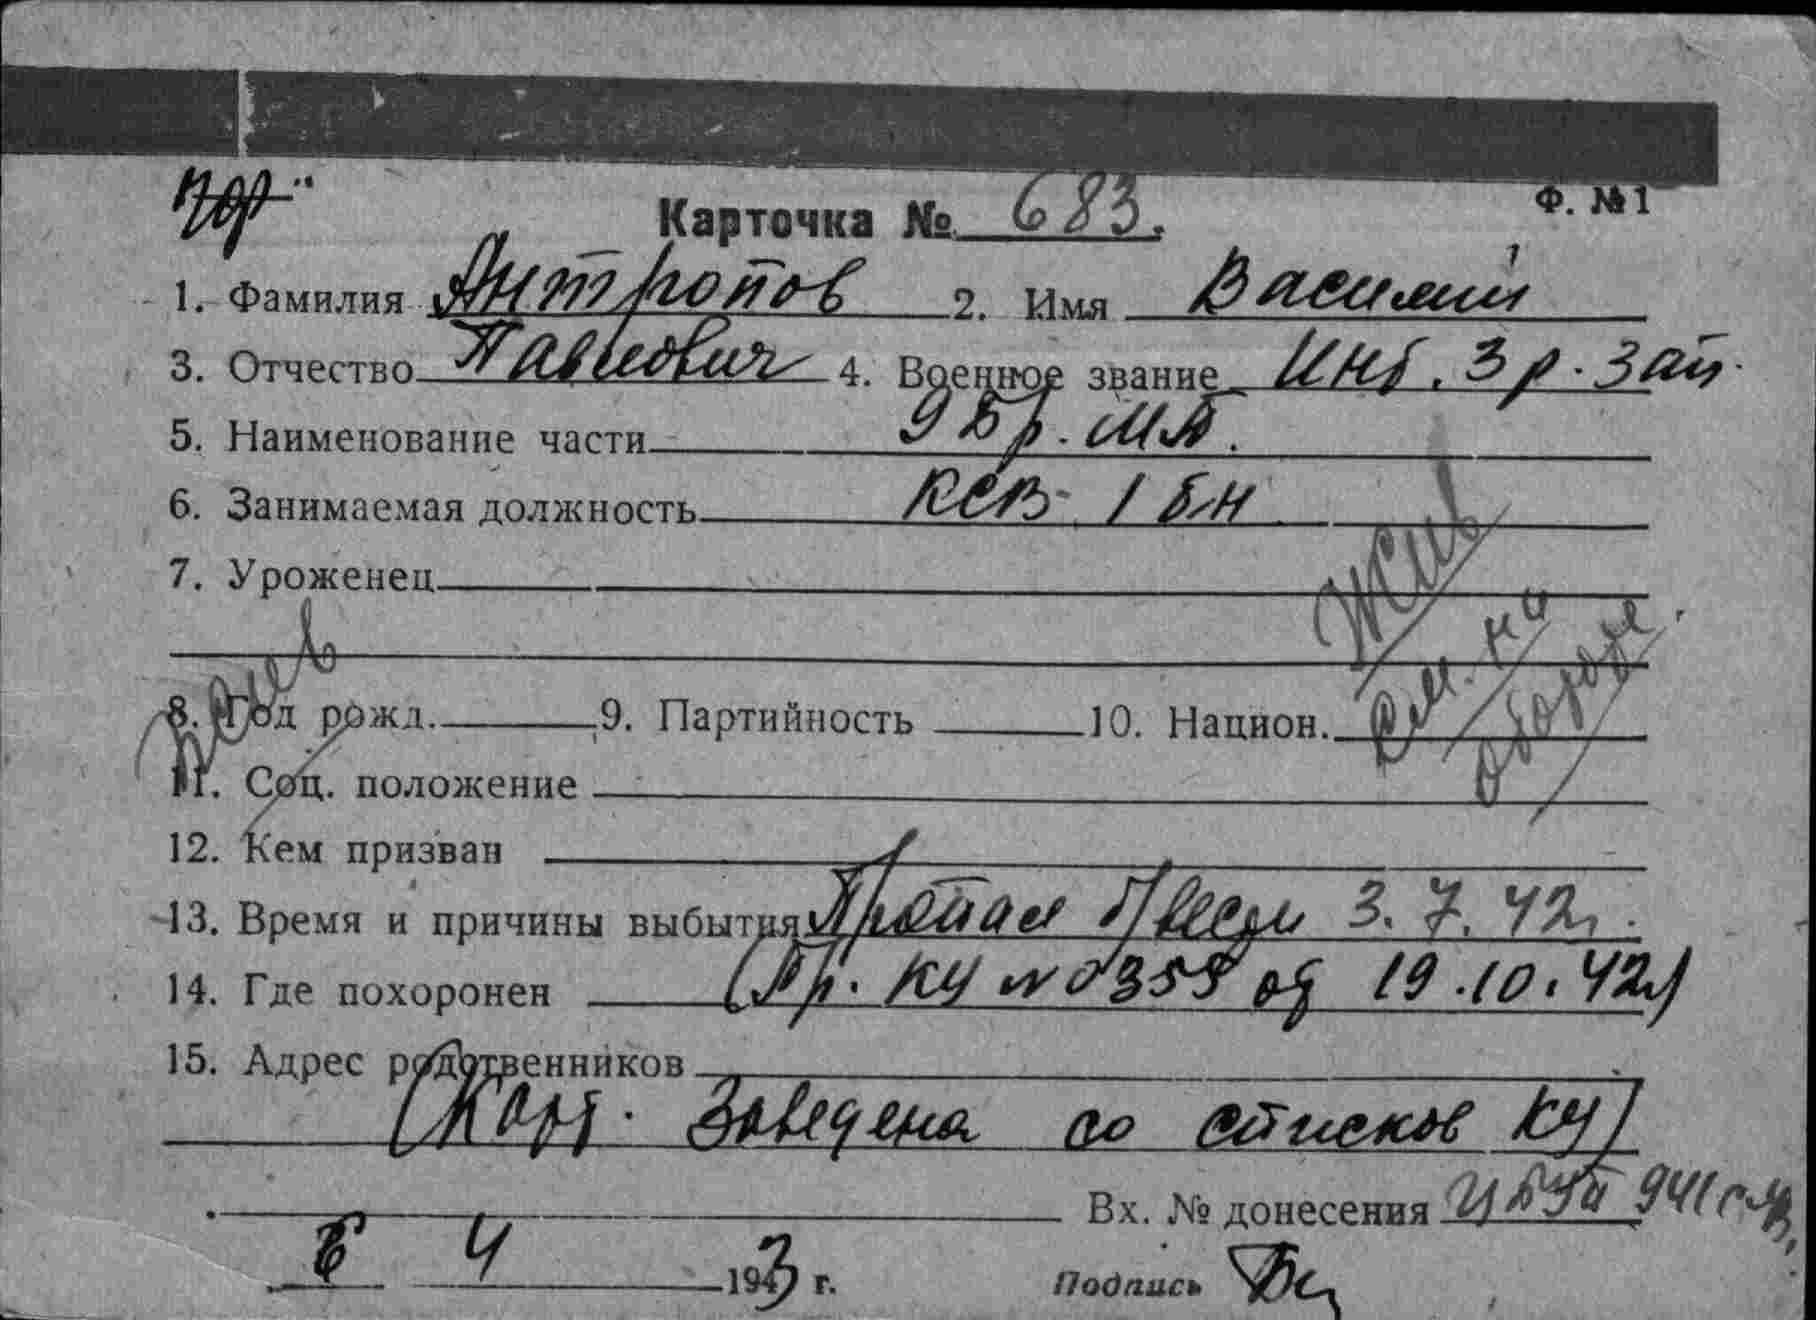 Ф. №1
Карточка № 683.
1. Фамилия Антропов 2. Имя Василий
3. Отчество Павлович 4. Военное звание Инт. 3 р. зап.
5. Наименование части 9 Бр. МП.
6. Занимаемая должность 1 б-н
7. Уроженец
Жив
См. на
обороте.
8. Год рожд. 9. Партийность 10. Национ.
11. Соц. положение
12. Кем призван
13. Время и причины выбытия Пропал б/вести 3.7.42г.
14. Где похоронен (Пр. КУ № от 19.10.42г)
15. Адрес родственников
(Карт. заведена со списков КУ)
Вх. № донесения
4 1943 г. Подпись